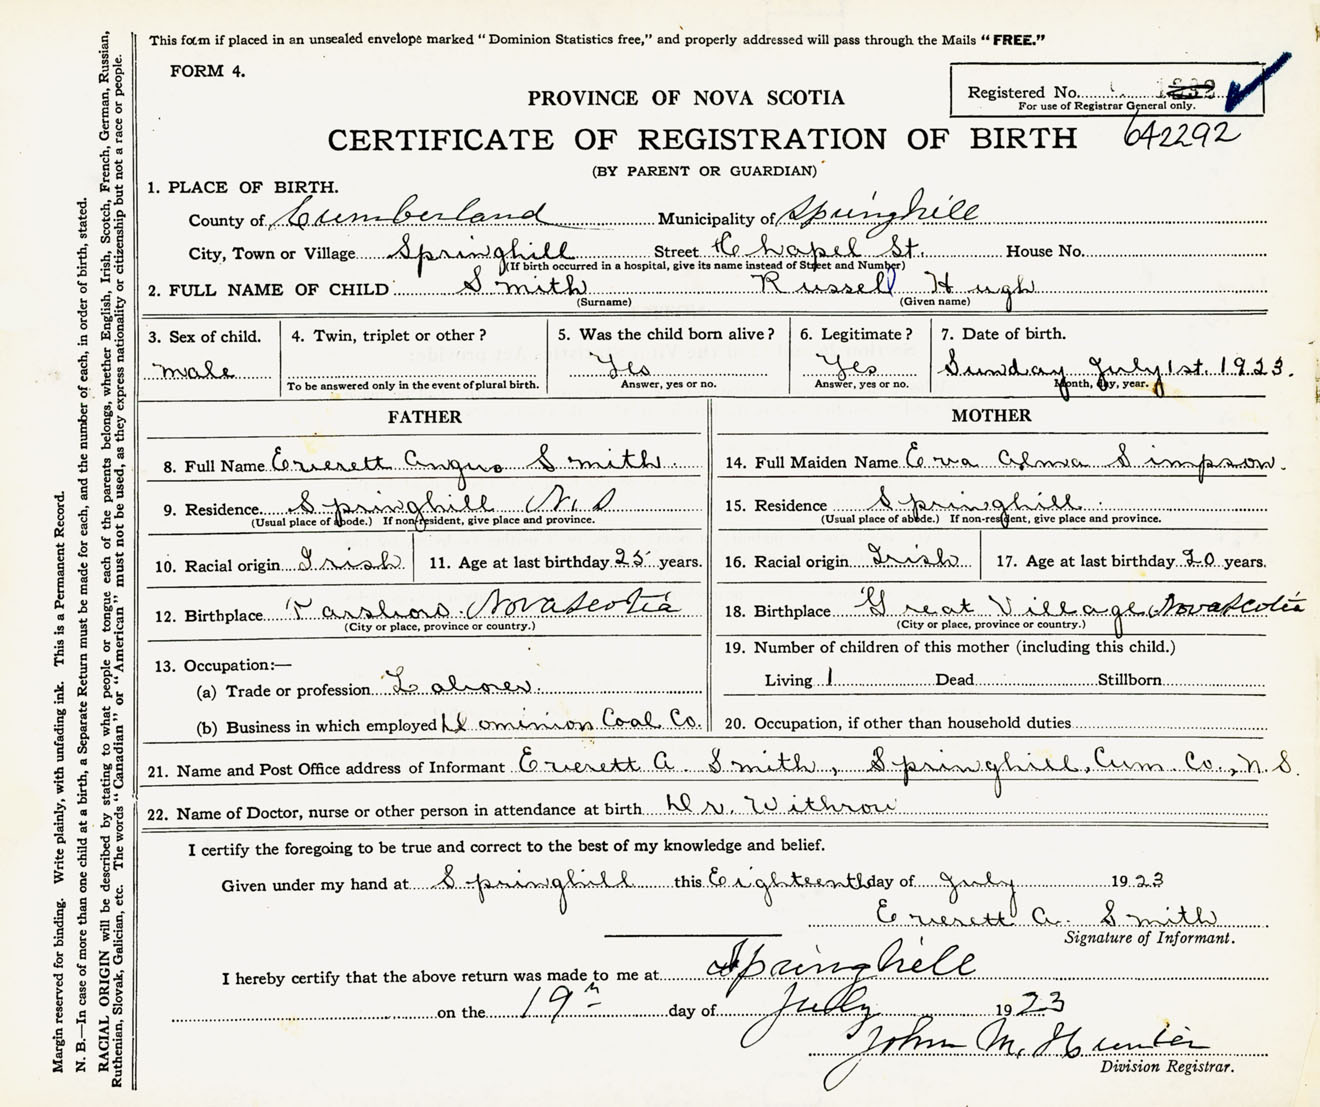 This form if placed in an unsealed envelope marked "Dominion Statistics free," and properly addressed will pass through the Mails "FREE."
FORM 4.
Registered No.
For use of Registrar General only.
642292
PROVINCE OF NOVA SCOTIA
CERTIFICATE OF REGISTRATION OF BIRTH
(BY PARENT OR GUARDIAN)
1. PLACE OF BIRTH.
County of Cumberland Municipality of Springhill
City, Town or Village Springhill Street Chapel St. House No.
(If birth occurred in a hospital, give its name instead of Street and Number)
2. FULL NAME OF CHILD Smith Russell Hugh
(Surname) (Given name)
3. Sex of child. 4. Twin, triplet or other? 5. Was the child born alive? 6. Legitimate? 7. Date of birth.
Male Yes Yes Sunday July 1st. 1923.
To be answered only in the event of plural birth. Answer, yes or no. Answer, yes or no. Month, day, year.
FATHER MOTHER
8. Full Name Everett Angus Smith 14. Full Maiden Name Eva Alma Simpson.
9. Residence Springhill N.S 15. Residence Springhill
(Usual place of abode.) If non-resident, give place and province. (Usual place of abode.) If non-resident, give place and province.
10. Racial origin Irish 11. Age at last birthday 25 years. 16. Racial origin Irish 17. Age at last birthday 20 years.
12. Birthplace Parsboro. Nova Scotia 18. Birthplace Great Village Nova Scotia
(City or place, province or country.) (City or place, province or country.)
13. Occupation:— 19. Number of children of this mother (including this child.)
(a) Trade or profession Laborer. Living 1 Dead Stillborn
(b) Business in which employed Dominion Coal Co. 20. Occupation, if other than household duties
21. Name and Post Office address of Informant Everett A. Smith, Springhill, Cum. Co., N.S.
22. Name of Doctor, nurse or other person in attendance at birth Dr. Withrow
I certify the foregoing to be true and correct to the best of my knowledge and belief.
Given under my hand at Springhill this Eighteenth day of July 1923
Everett A. Smith
Signature of Informant.
I hereby certify that the above return was made to me at Springhill
on the 19th day of July 1923
John M. Hunter
Division Registrar.
Margin reserved for binding. Write plainly, with unfading ink. This is a Permanent Record.
N. B.—In case of more than one child at a birth, a Separate Return must be made for each, and the number of each, in order of birth, stated.
RACIAL ORIGIN will be described by stating to what people or tongue each of the parents belongs, whether English, Irish, Scotch, French, German, Russian,
Ruthenian, Slovak, Galician, etc. The words "Canadian" or "American" must not be used, as they express nationality or citizenship but not a race or people.